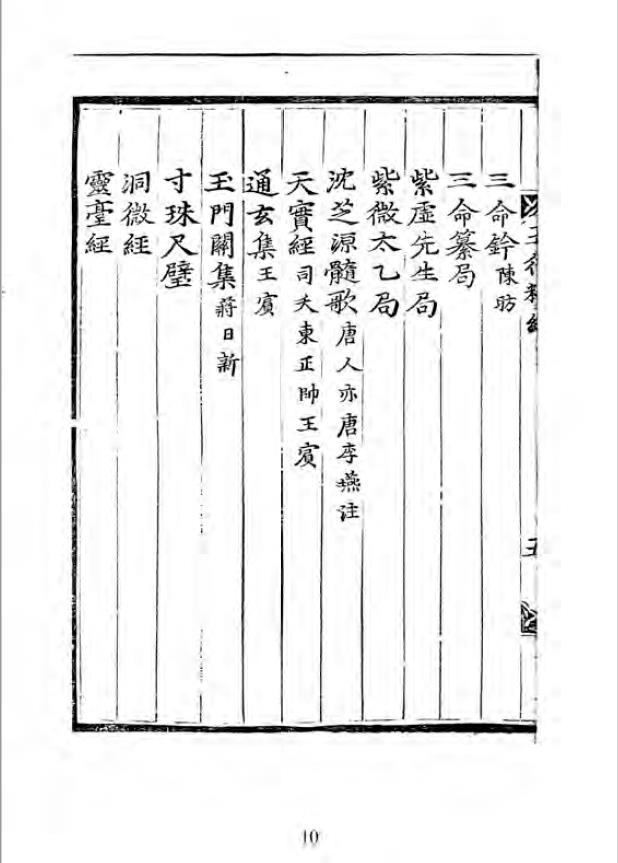 三命鈐陳昉
三命纂局
紫虛先生局
紫微太乙局
沈芝源髓歌唐人亦唐李燕注
天寳經司天東正帥王賔
通玄集王賔
玉門關集蔣日新
寸珠尺璧
洞微經
靈臺經
10